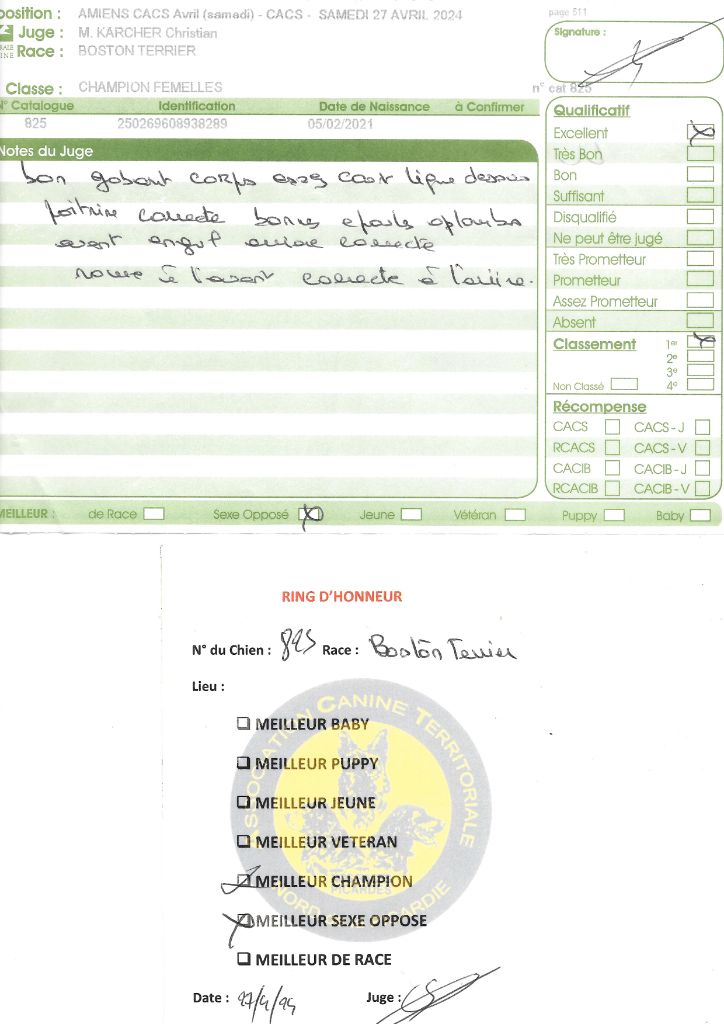 position : AMIENS CACS Avril (samedi) - CACS - SAMEDI 27 AVRIL 2024
page 511
Juge : M. KARCHER Christian
Race : BOSTON TERRIER
Signature :
Classe : CHAMPION FEMELLES
n° cat 825
N° Catalogue Identification Date de Naissance à Confirmer
825 250269608938289 05/02/2021
Notes du Juge
bon gabarit corps assez court ligne dessus
poitrine correcte bonnes epaules aplombs
avant angul arriere correcte
à l'avant correcte à l'arriere.
Qualificatif
Excellent
Très Bon
Bon
Suffisant
Disqualifié
Ne peut être jugé
Très Prometteur
Prometteur
Assez Prometteur
Absent
Classement 1er
2e
3e
Non Classé 4e
Récompense
CACS CACS - J
RCACS CACS - V
CACIB CACIB - J
RCACIB CACIB - V
MEILLEUR : de Race Sexe Opposé Jeune Vétéran Puppy Baby
RING D'HONNEUR
N° du Chien : 825 Race : Boston Terrier
Lieu :
MEILLEUR BABY
MEILLEUR PUPPY
MEILLEUR JEUNE
MEILLEUR VETERAN
MEILLEUR CHAMPION
MEILLEUR SEXE OPPOSE
MEILLEUR DE RACE
ASSOCIATION CANINE TERRITORIALE
NORD PICARDIE
Date : 27/4/24 Juge :